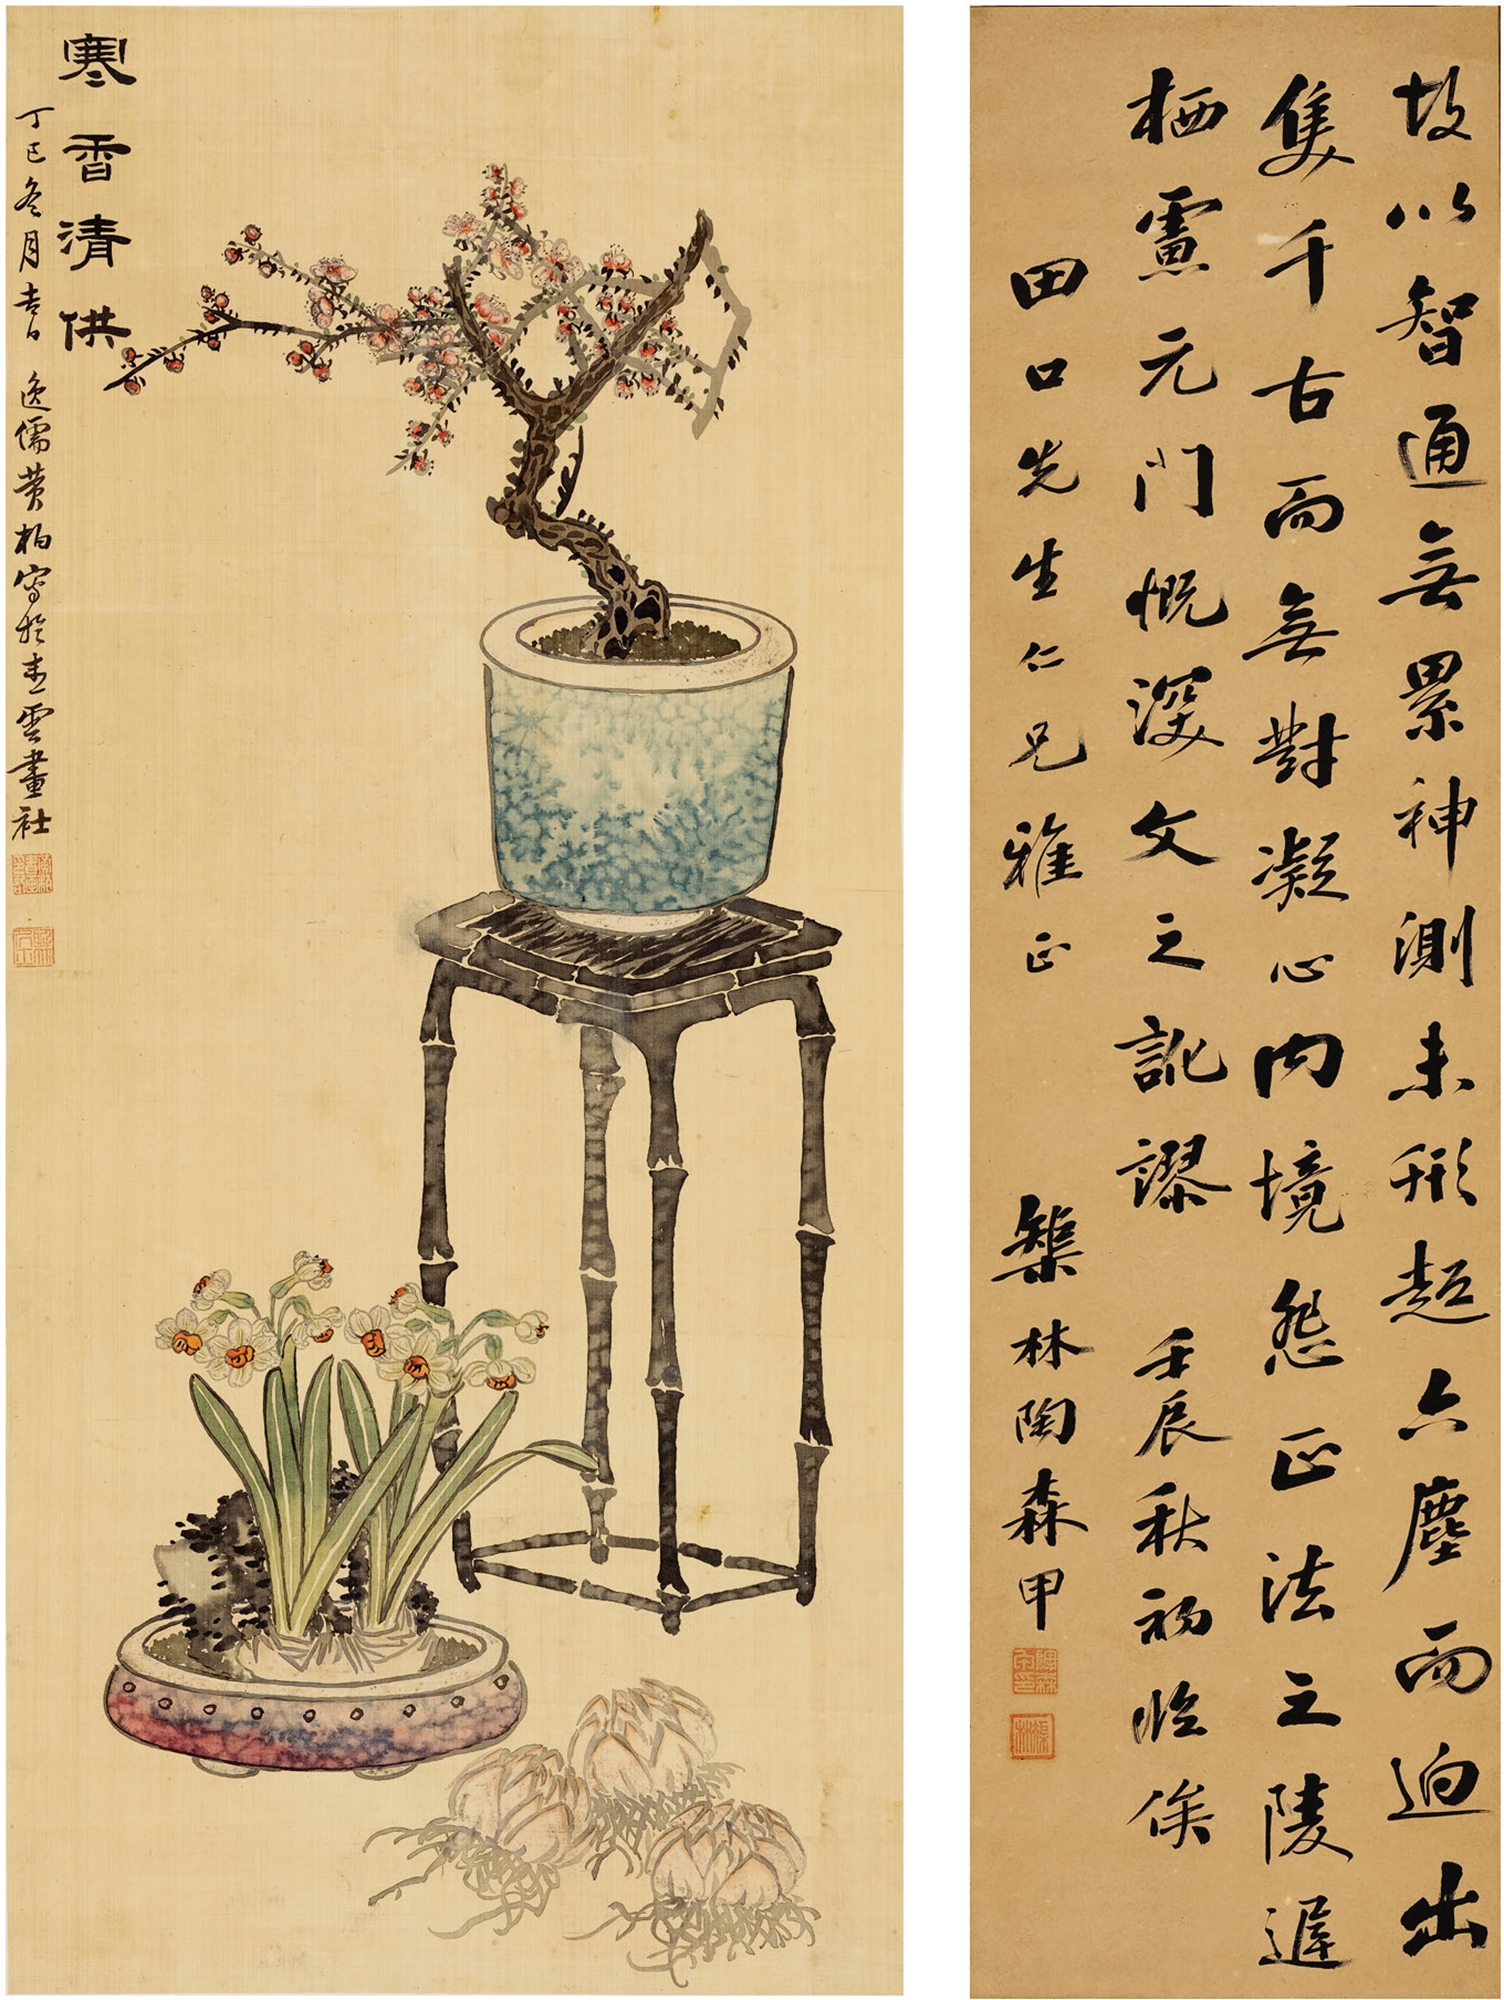 寒香清供
丁巳冬月吉日 逸儒黄柏寫於畫雲畫社
故以智通無累神測未形超六塵而迥出
隻千古而無對凝心內境悲正法之陵遲
栖慮元門慨深文之訛謬 壬辰秋初臨俟
田口先生仁兄雅正
榘林陶森甲